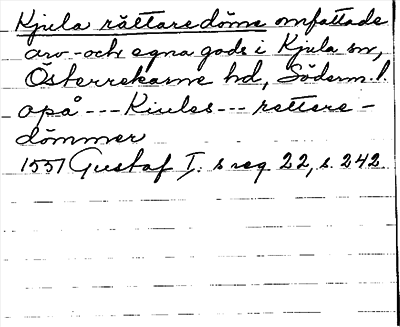 Kjula rättaredöme omfattade
arv- och egna gods i Kjula sn,
Österrekarne hd, Söderm. l.
opå --- Kiules --- rettere-
dömmer
1551 Gustaf I. s reg 22, s. 242